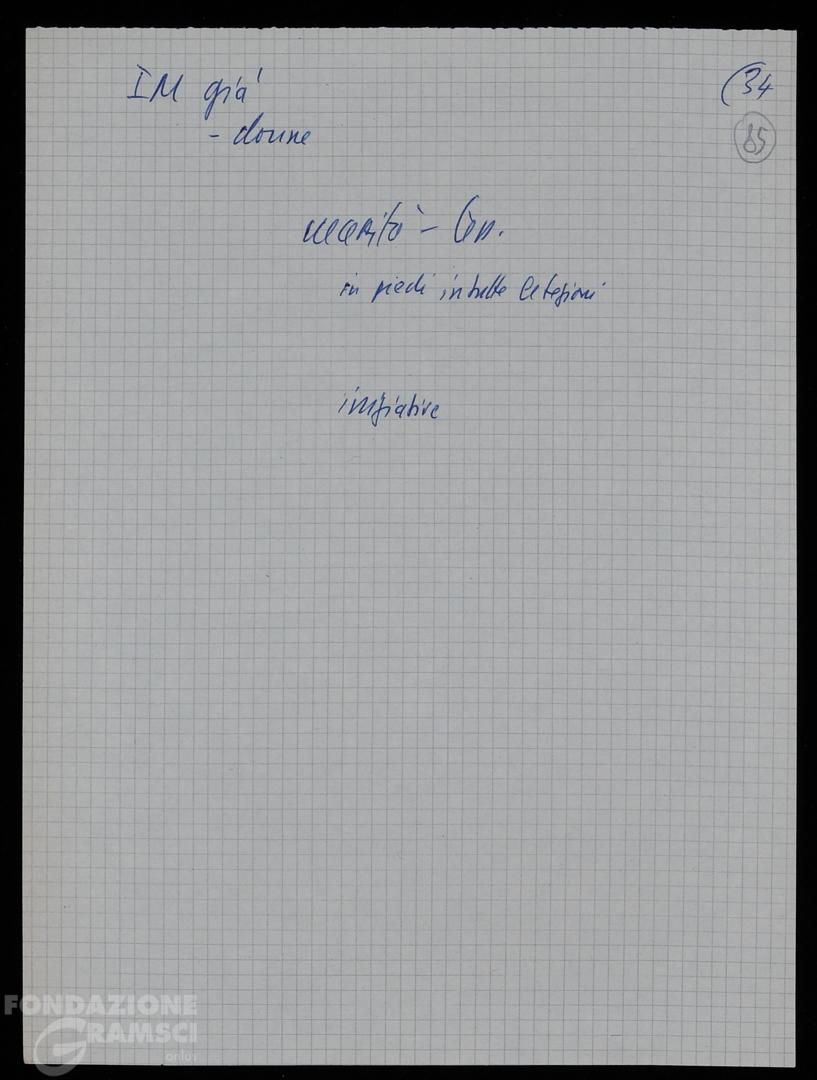 IM già
- donne
(34
85
- Con.
in piedi in tutte le regioni
iniziative
FONDAZIONE
GRAMSCI
onlus